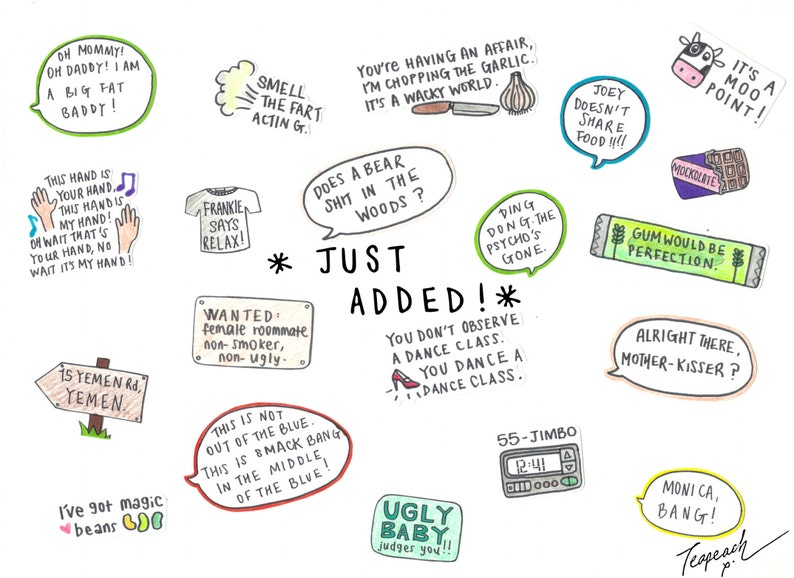 OH MOMMY!
OH DADDY! I AM
A BIG FAT
BADDY!
SMELL
THE FART
ACTING.
YOU'RE HAVING AN AFFAIR,
I'M CHOPPING THE GARLIC.
IT'S A WACKY WORLD.
JOEY
DOESN'T
SHARE
FOOD!!!!
IT'S A
MOO
POINT!
THIS HAND IS
YOUR HAND,
THIS HAND IS
MY HAND!
OH WAIT THAT'S
YOUR HAND, NO
WAIT IT'S MY HAND!
FRANKIE
SAYS
RELAX!
DOES A BEAR
SHIT IN THE
WOODS?
DING
DONG. THE
PSYCHO'S
GONE.
MOCKOLATE
GUM WOULD BE
PERFECTION.
* JUST
ADDED! *
WANTED:
female roommate
non-smoker,
non-ugly.
YOU DON'T OBSERVE
A DANCE CLASS.
YOU DANCE A
DANCE CLASS.
ALRIGHT THERE,
MOTHER-KISSER?
15 YEMEN Rd,
YEMEN.
THIS IS NOT
OUT OF THE BLUE.
THIS IS SMACK BANG
IN THE MIDDLE
OF THE BLUE!
55-JIMBO
12:41
I've got magic
beans
UGLY
BABY
judges you!!
MONICA,
BANG!
Teapeach
p.